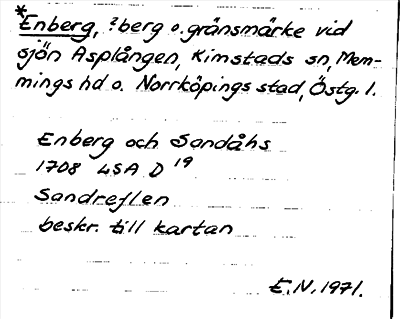 *Enberg, ?berg o. gränsmärke vid
sjön Asplången, Kimstads sn, Mem-
mings hd o. Norrköpings stad, Östg. l.
Enberg och Sandåhs
1708 LSA D 19
Sandreflen
beskr. till kartan
E.N. 1971.